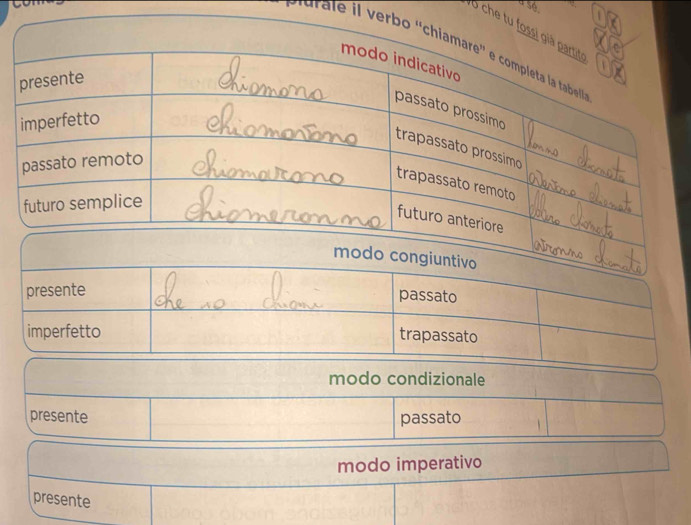 plurale il verbo "chiamare" e completa la tabella.
che tu fossi già partito
modo indicativo
presente chiamano passato prossimo hanno chiamato
imperfetto chiamavano trapassato prossimo avevano chiamato
passato remoto chiamarono trapassato remoto chiamato
futuro semplice chiameranno futuro anteriore avranno chiamato
modo congiuntivo
presente che io chiami passato
imperfetto trapassato
modo condizionale
presente passato
modo imperativo
presente